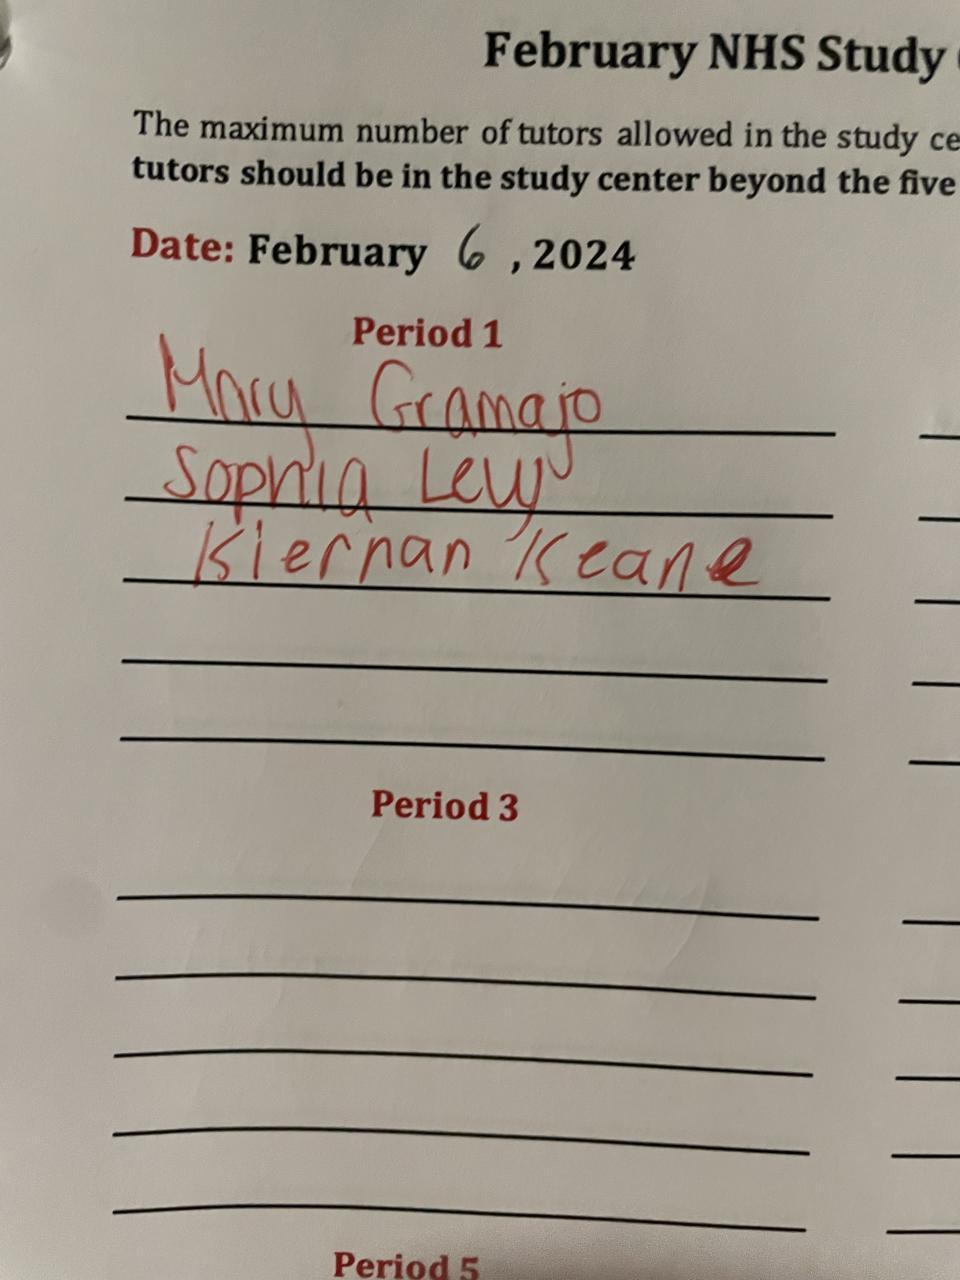 February NHS Study
The maximum number of tutors allowed in the study ce
tutors should be in the study center beyond the five
Date: February 6, 2024
Period 1
Mary Gramajo
Sophia Levy
Kiernan Keane
Period 3
Period 5